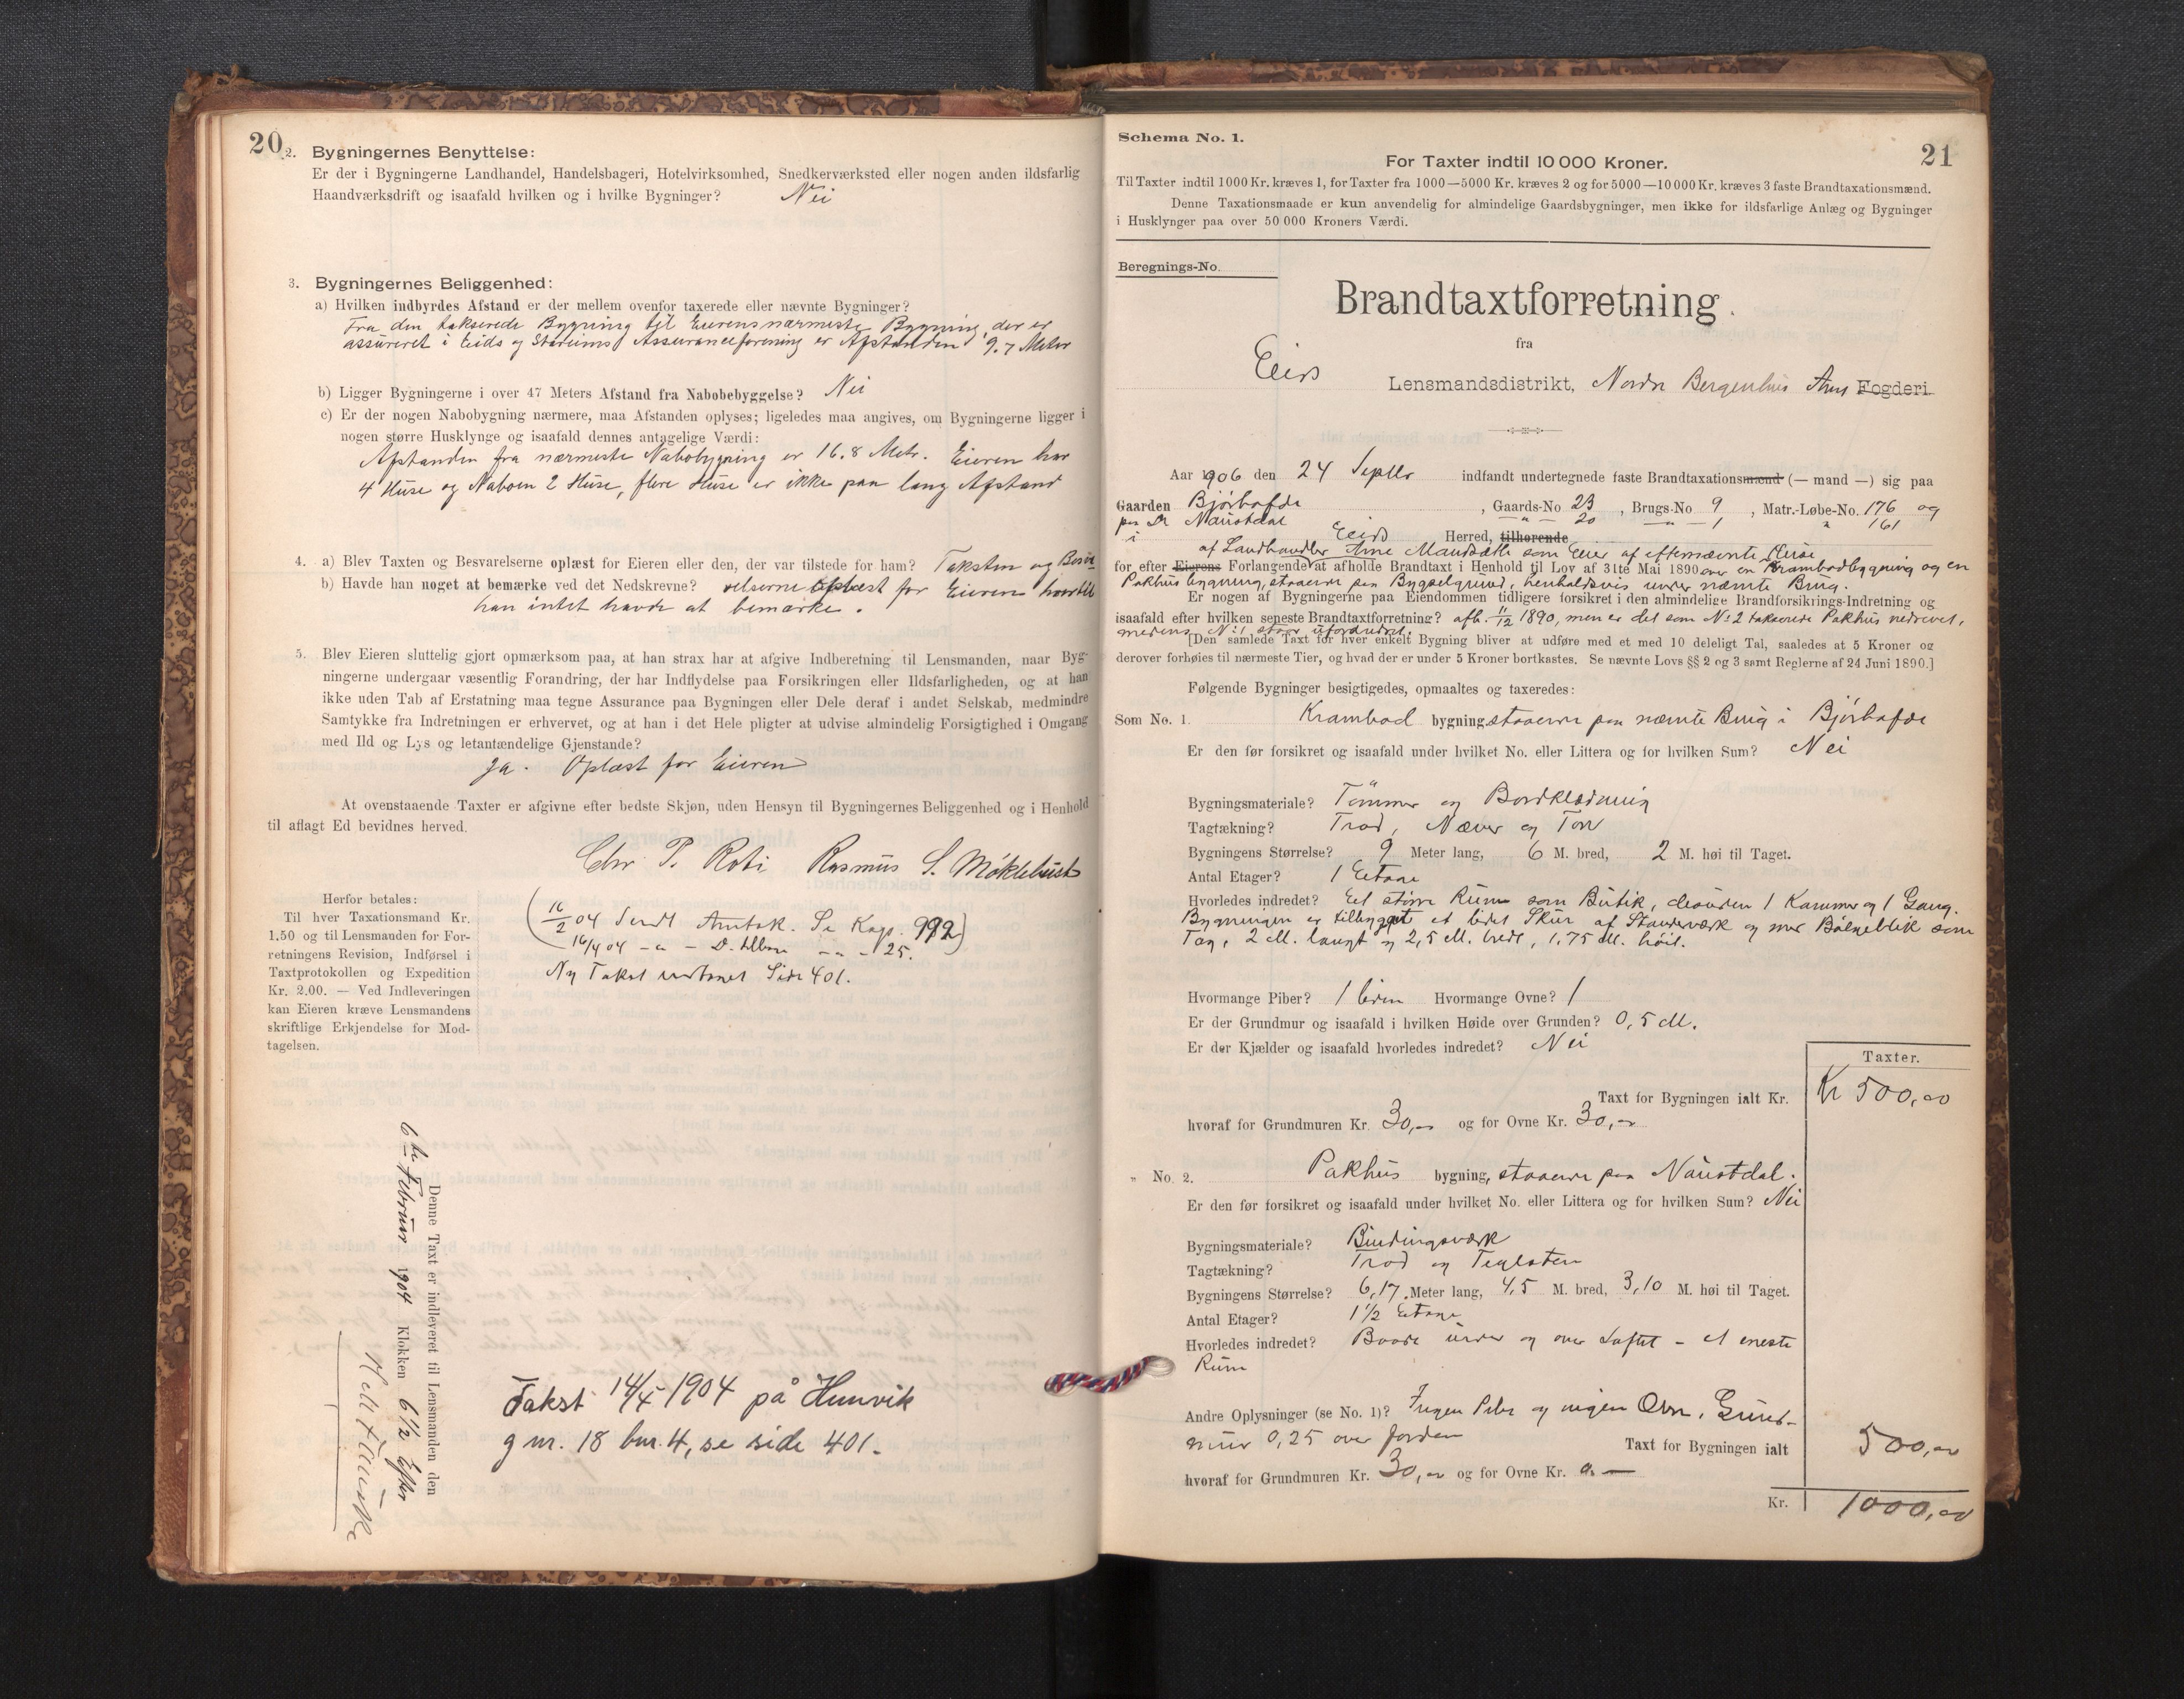 20
2. Bygningernes Benyttelse:
Er der i Bygningerne Landhandel, Handelsbageri, Hotelvirksomhed, Snedkerværksted eller nogen anden ildsfarlig
Haandværksdrift og isaafald hvilken og i hvilke Bygninger? Nei
3. Bygningernes Beliggenhed:
a) Hvilken indbyrdes Afstand er der mellem ovenfor taxerede eller nævnte Bygninger?
Fra den takserede Bygning til Eierens nærmeste Bygning, der er
assureret i Eids og Stadems Assuranceforening er Afstanden 9.7 Meter
b) Ligger Bygningerne i over 47 Meters Afstand fra Nabobebyggelse? Nei
c) Er der nogen Nabobygning nærmere, maa Afstanden oplyses; ligeledes maa angives, om Bygningerne ligger i
nogen større Husklynge og isaafald dennes antagelige Værdi:
Afstanden fra nærmeste Nabobygning er 16.8 Metr. Eieren har
4 Huse og Naboen 2 Huse, flere Huse er ikke paa lang Afstand
4. a) Blev Taxten og Besvarelserne oplæst for Eieren eller den, der var tilstede for ham? Taksten og Besva
b) Havde han noget at bemærke ved det Nedskrevne? relserne oplæst for Eieren hvortil
han intet havde at bemærke.
5. Blev Eieren sluttelig gjort opmærksom paa, at han strax har at afgive Indberetning til Lensmanden, naar Byg-
ningerne undergaar væsentlig Forandring, der har Indflydelse paa Forsikringen eller Ildsfarligheden, og at han
ikke uden Tab af Erstatning maa tegne Assurance paa Bygningen eller Dele deraf i andet Selskab, medmindre
Samtykke fra Indretningen er erhvervet, og at han i det Hele pligter at udvise almindelig Forsigtighed i Omgang
med Ild og Lys og letantændelige Gjenstande?
Ja. Oplæst for Eieren
At ovenstaaende Taxter er afgivne efter bedste Skjøn, uden Hensyn til Bygningernes Beliggenhed og i Henhold
til aflagt Ed bevidnes herved.
Chr P. Roti Rasmus S. Möklebust
Herfor betales:
Til hver Taxationsmand Kr.
1.50 og til Lensmanden for For-
retningens Revision, Indførsel i
Taxtprotokollen og Expedition
Kr. 2.00. — Ved Indleveringen
kan Eieren kræve Lensmandens
skriftlige Erkjendelse for Mod-
tagelsen.
(16/2 04 Sendt Amtsk. Se Kop. 992)
16/4 04 - " - D. - " - 25.
Ny Takst Side 401.
Denne Taxt er indleveret til Lensmanden den
6te Februar 1904 Klokken 6 1/2 Efter
Takst 14/5 1904 på Hunvik
gnr. 18 bnr. 4, se side 401.
Schema No. 1.
21
For Taxter indtil 10 000 Kroner.
Til Taxter indtil 1000 Kr. kræves 1, for Taxter fra 1000—5000 Kr. kræves 2 og for 5000—10 000 Kr. kræves 3 faste Brandtaxationsmænd.
Denne Taxationsmaade er kun anvendelig for almindelige Gaardsbygninger, men ikke for ildsfarlige Anlæg og Bygninger
i Husklynger paa over 50 000 Kroners Værdi.
Beregnings-No.
Brandtaxtforretning
fra
Eids Lensmandsdistrikt, Nordre Bergenhus Amt Fogderi
Aar 1906 den 24 Septbr indfandt undertegnede faste Brandtaxationsmænd (— mand —) sig paa
Gaarden Bjørhafde , Gaards-No 23 , Brugs-No 9 , Matr.-Løbe-No. 176 og
paa Do Naustdal " 20 " 1 " 161
i Eids Herred, tilhørende
af Landhandler Arne Maudsæth som Eier af efternævnte Huse
for efter Eierens Forlangende at afholde Brandtaxt i Henhold til Lov af 31te Mai 1890 over en Krambodbygning og en
Pakhus bygning, staaende paa Bygselgrund, henholdsvis under nævnte Brug.
Er nogen af Bygningerne paa Eiendommen tidligere forsikret i den almindelige Brandforsikrings-Indretning og
isaafald efter hvilken seneste Brandtaxtforretning? afh. 11/12 1890, men er det som No 2 takserede Pakhus nedrevet,
medens No 1 staar uforandret.
[Den samlede Taxt for hver enkelt Bygning bliver at udføre med et med 10 deleligt Tal, saaledes at 5 Kroner og
derover forhøies til nærmeste Tier, og hvad der er under 5 Kroner bortkastes. Se nævnte Lovs §§ 2 og 3 samt Reglerne af 24 Juni 1890.]
Følgende Bygninger besigtigedes, opmaaltes og taxeredes:
Som No. 1. Krambod bygning, staaende paa nævnte Brug i Bjørhafde
Er den før forsikret og isaafald under hvilket No. eller Littera og for hvilken Sum? Nei
Bygningsmateriale? Tømmer og Bordklædning
Tagtækning? Trod, Næver og Torv
Bygningens Størrelse? 9 Meter lang, 6 M. bred, 2 M. høi til Taget.
Antal Etager? 1 Eetage
Hvorledes indredet? Eet større Rum som Butik, desuden 1 Kammer og 1 Gang.
Bygningen er tilbygget et lidet Skur af Stavverk og med Bølgeblik som
Tag, 2 M. langt og 2,5 M. bredt, 1,75 M. høit.
Hvormange Piber? 1 liden Hvormange Ovne? 1
Er der Grundmur og isaafald i hvilken Høide over Grunden? 0,5 M.
Er der Kjælder og isaafald hvorledes indredet? Nei
Taxter.
Taxt for Bygningen ialt Kr. Kr 500,00
hvoraf for Grundmuren Kr. 30,00 og for Ovne Kr. 30,00
" No. 2. Pakhus bygning, staaende paa Naustdal.
Er den før forsikret og isaafald under hvilket No. eller Littera og for hvilken Sum? Nei
Bygningsmateriale? Bindingsværk
Tagtækning? Trod og Teglsten
Bygningens Størrelse? 6,17 Meter lang, 4,5 M. bred, 3,10 M. høi til Taget.
Antal Etager? 1 1/2 Eetage
Hvorledes indredet? Baade under og over Loftet - et eneste
Rum
Andre Oplysninger (se No. 1)? Ingen Pibe og ingen Ovn. Grund-
mur 0,25 over Jorden Taxt for Bygningen ialt 500,00
hvoraf for Grundmuren Kr. 30,00 og for Ovne Kr. 0. —
Kr. 1000,00